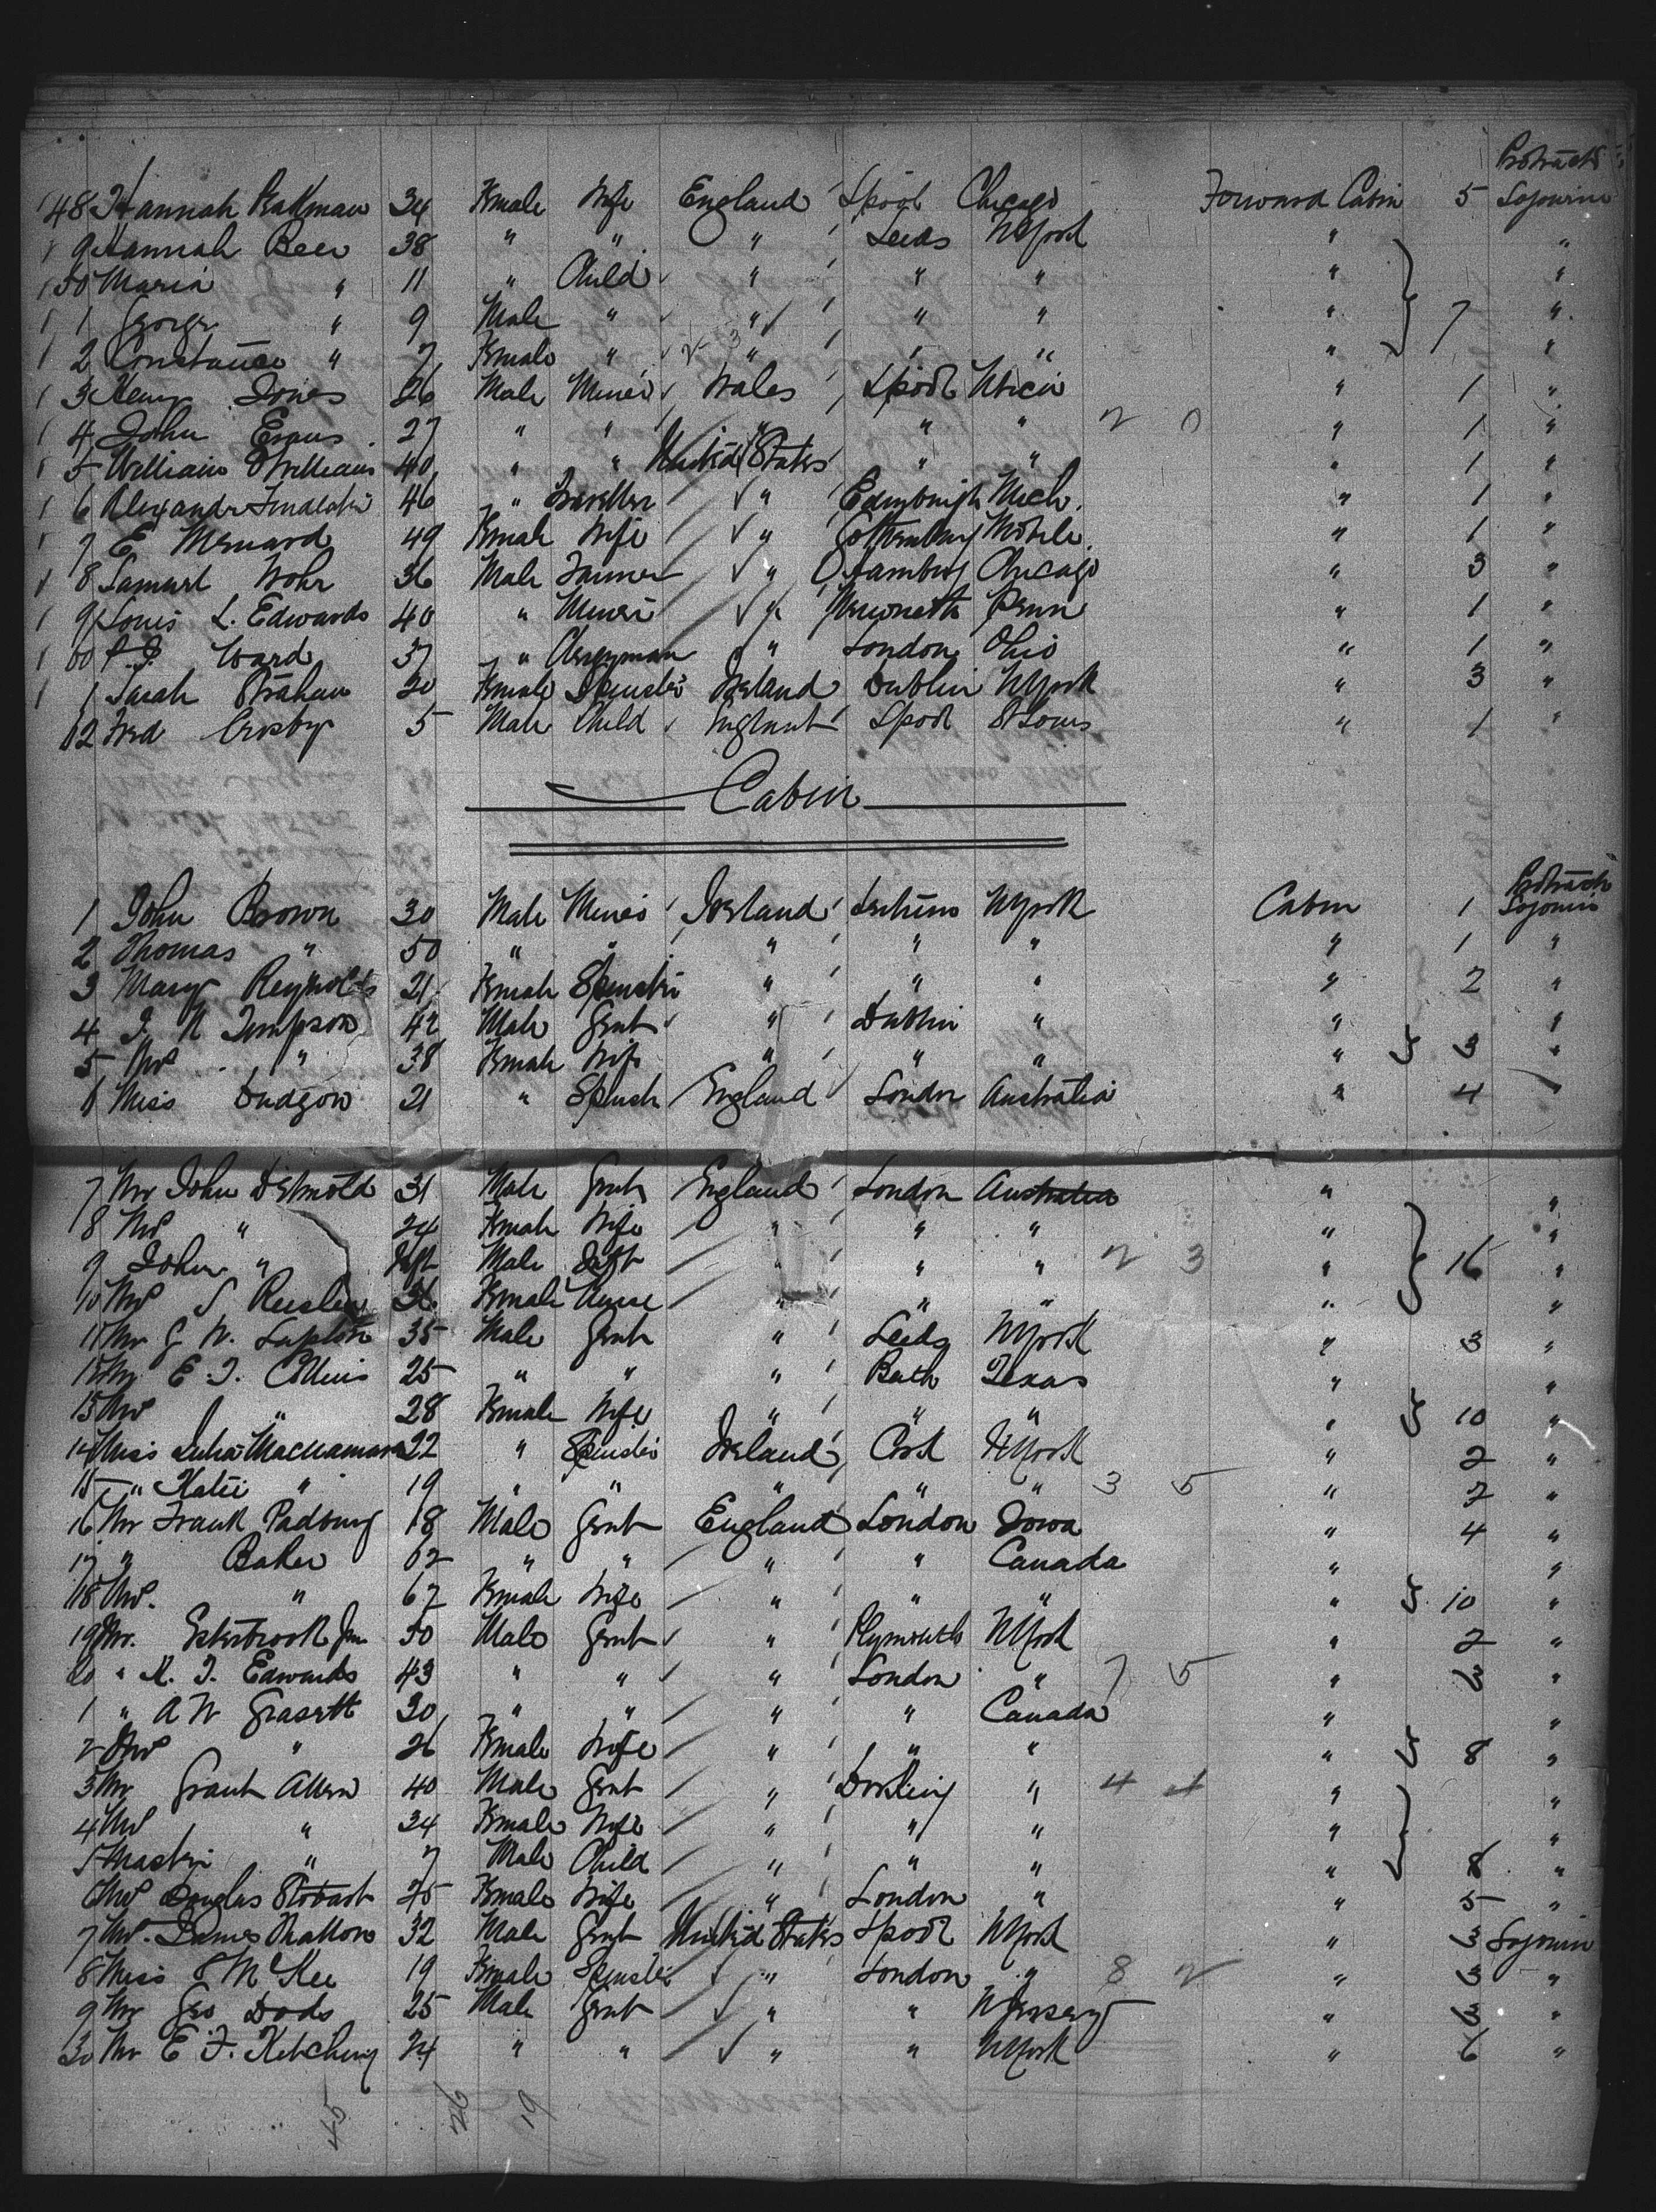 Protracted
48 Hannah Bakman 34 Female Wife England Lpool Chicago Forward Cabin 5 Sojourn
9 Hannah Beer 38 " " " Leeds NYork " "
50 Maria " 11 " Child " " " " "
1 George " 9 Male " " " " " 7 "
2 Constance " 7 Female " " " " " "
3 Henry Jones 26 Male Miner Wales Lpool Utica " 1 "
4 John Evans 27 " " " " " 2 0 " 1 "
5 William Williams 40 " " United States " " " 1 "
6 Alexander 46 " Traveller " Edinburgh Mich. " 1 "
7 E Menard 49 Female Wife " Gothenburg Mobile " 1 "
8 Samuel Wohr 36 Male Farmer " Hamburg Chicago " 3 "
9 Louis L. Edwards 40 " Miner " Penn " 1 "
60 Ward 37 " Clergyman " London Ohio " 1 "
1 Sarah Strahan 20 Female Spinster Ireland Dublin NYork " 3 "
62 Fred Crosby 5 Male Child England Lpool St Louis " 1 "
Cabin
Protracted
1 John Brown 30 Male Miner Ireland NYork Cabin 1 Sojourn
2 Thomas " 50 " " " " " " 1 "
3 Mary Reynolds 21 Female Spinster " " " " 2 "
4 Timpson 42 Male Gent " Dublin " " "
5 Mrs " 38 Female Wife " " " " 3 "
6 Miss Dudgeon 21 " Spinst England London Australia " 4 "
7 Mr John Detmold 31 Male Gent England London Australia " "
8 Mrs " 24 Female Wife " " " " "
9 John " Inft Male Inft " " " 2 3 " 16 "
10 Mrs S 36 Female Nurse " " " " "
11 Mr G W. Lupton 35 Male Gent " Leeds NYork " 3 "
12 Mr E. J. Collins 25 " " " Bath Texas " "
13 Mrs " 28 Female Wife " " " " 10 "
14 Miss Julia Macnamara 22 " Spinster Ireland Cork NYork " 2 "
15 " Katie " 19 " " " " " 3 5 " 2 "
16 Mr Frank Padbury 18 Male Gent England London Iowa " 4 "
17 " Baker 62 " " " " Canada " "
18 Mrs. " 67 Female Wife " " " " 10 "
19 Mr. Esterbrook Jun 50 Male Gent " Plymouth NYork " 2 "
20 " R. J. Edwards 43 " " " London " 7 5 " 3 "
1 " A W Grasett 30 " " " " Canada " "
2 Mrs " 26 Female Wife " " " " 8 "
3 Mr Grant Allen 40 Male Gent " Dorking " 4 4 " "
4 Mrs " 34 Female Wife " " " " "
5 Master " 7 Male Child " " " " 8 "
6 Mrs Douglas Stobart 25 Female Wife " London " " 5 "
7 Mr. James 32 Male Gent United States Lpool NYork " 3 Sojourn
8 Miss McKee 19 Female Spinster " London " 8 2 " 3 "
9 Mr Geo Dods 25 Male Gent " " NJersey " 3 "
30 Mr E F. Ketchum 24 " " " " NYork " 6 "
45 26 19